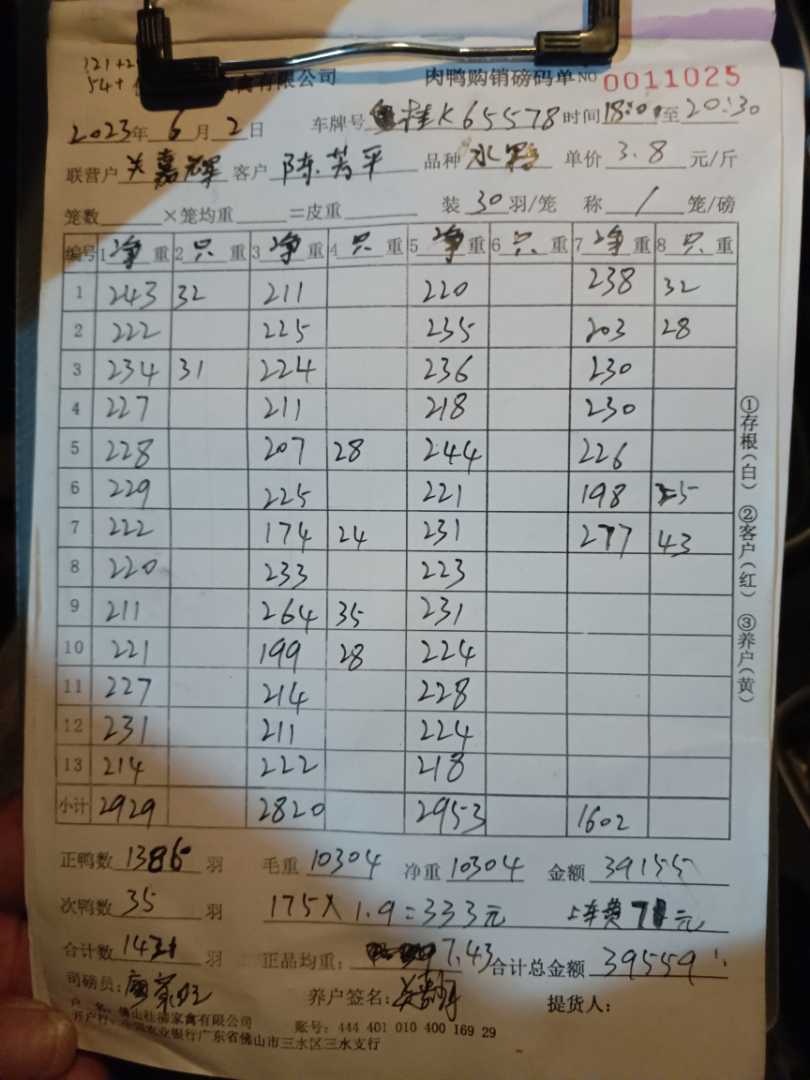 121+2
54+
禽有限公司 肉鸭购销磅码单 NO 0011025
2023年 6月 2日 车牌号 桂K65578 时间 18:0 至 20:30
联营户 关嘉辉 客户 陈芳平 品种 水鸭 单价 3.8 元/斤
笼数 ×笼均重 =皮重 装 30 羽/笼 称 1 笼/磅
编号 1 净 重 2 只 重 3 净 重 4 只 重 5 净 重 6 只 重 7 净 重 8 只 重
1 243 32 211 220 238 32
2 222 225 235 203 28
3 234 31 224 236 230
4 227 211 218 230
5 228 207 28 244 226
6 229 225 221 198 25
7 222 174 24 231 277 43
8 220 233 223
9 211 264 35 231
10 221 199 28 224
11 227 214 228
12 231 211 224
13 214 222 218
小计 2929 2820 2953 1602
①存根(白) ②客户(红) ③养户(黄)
正鸭数 1386 羽 毛重 10304 净重 10304 金额 39155
次鸭数 35 羽 175×1.9=333元 上车费 71元
合计数 1421 羽 正品均重: 7.43 合计总金额 39559
司磅员: 养户签名: 关 提货人:
户 名: 佛山社福家禽有限公司 账号: 444 401 010 400 169 29
开户行: 中国农业银行广东省佛山市三水区三水支行